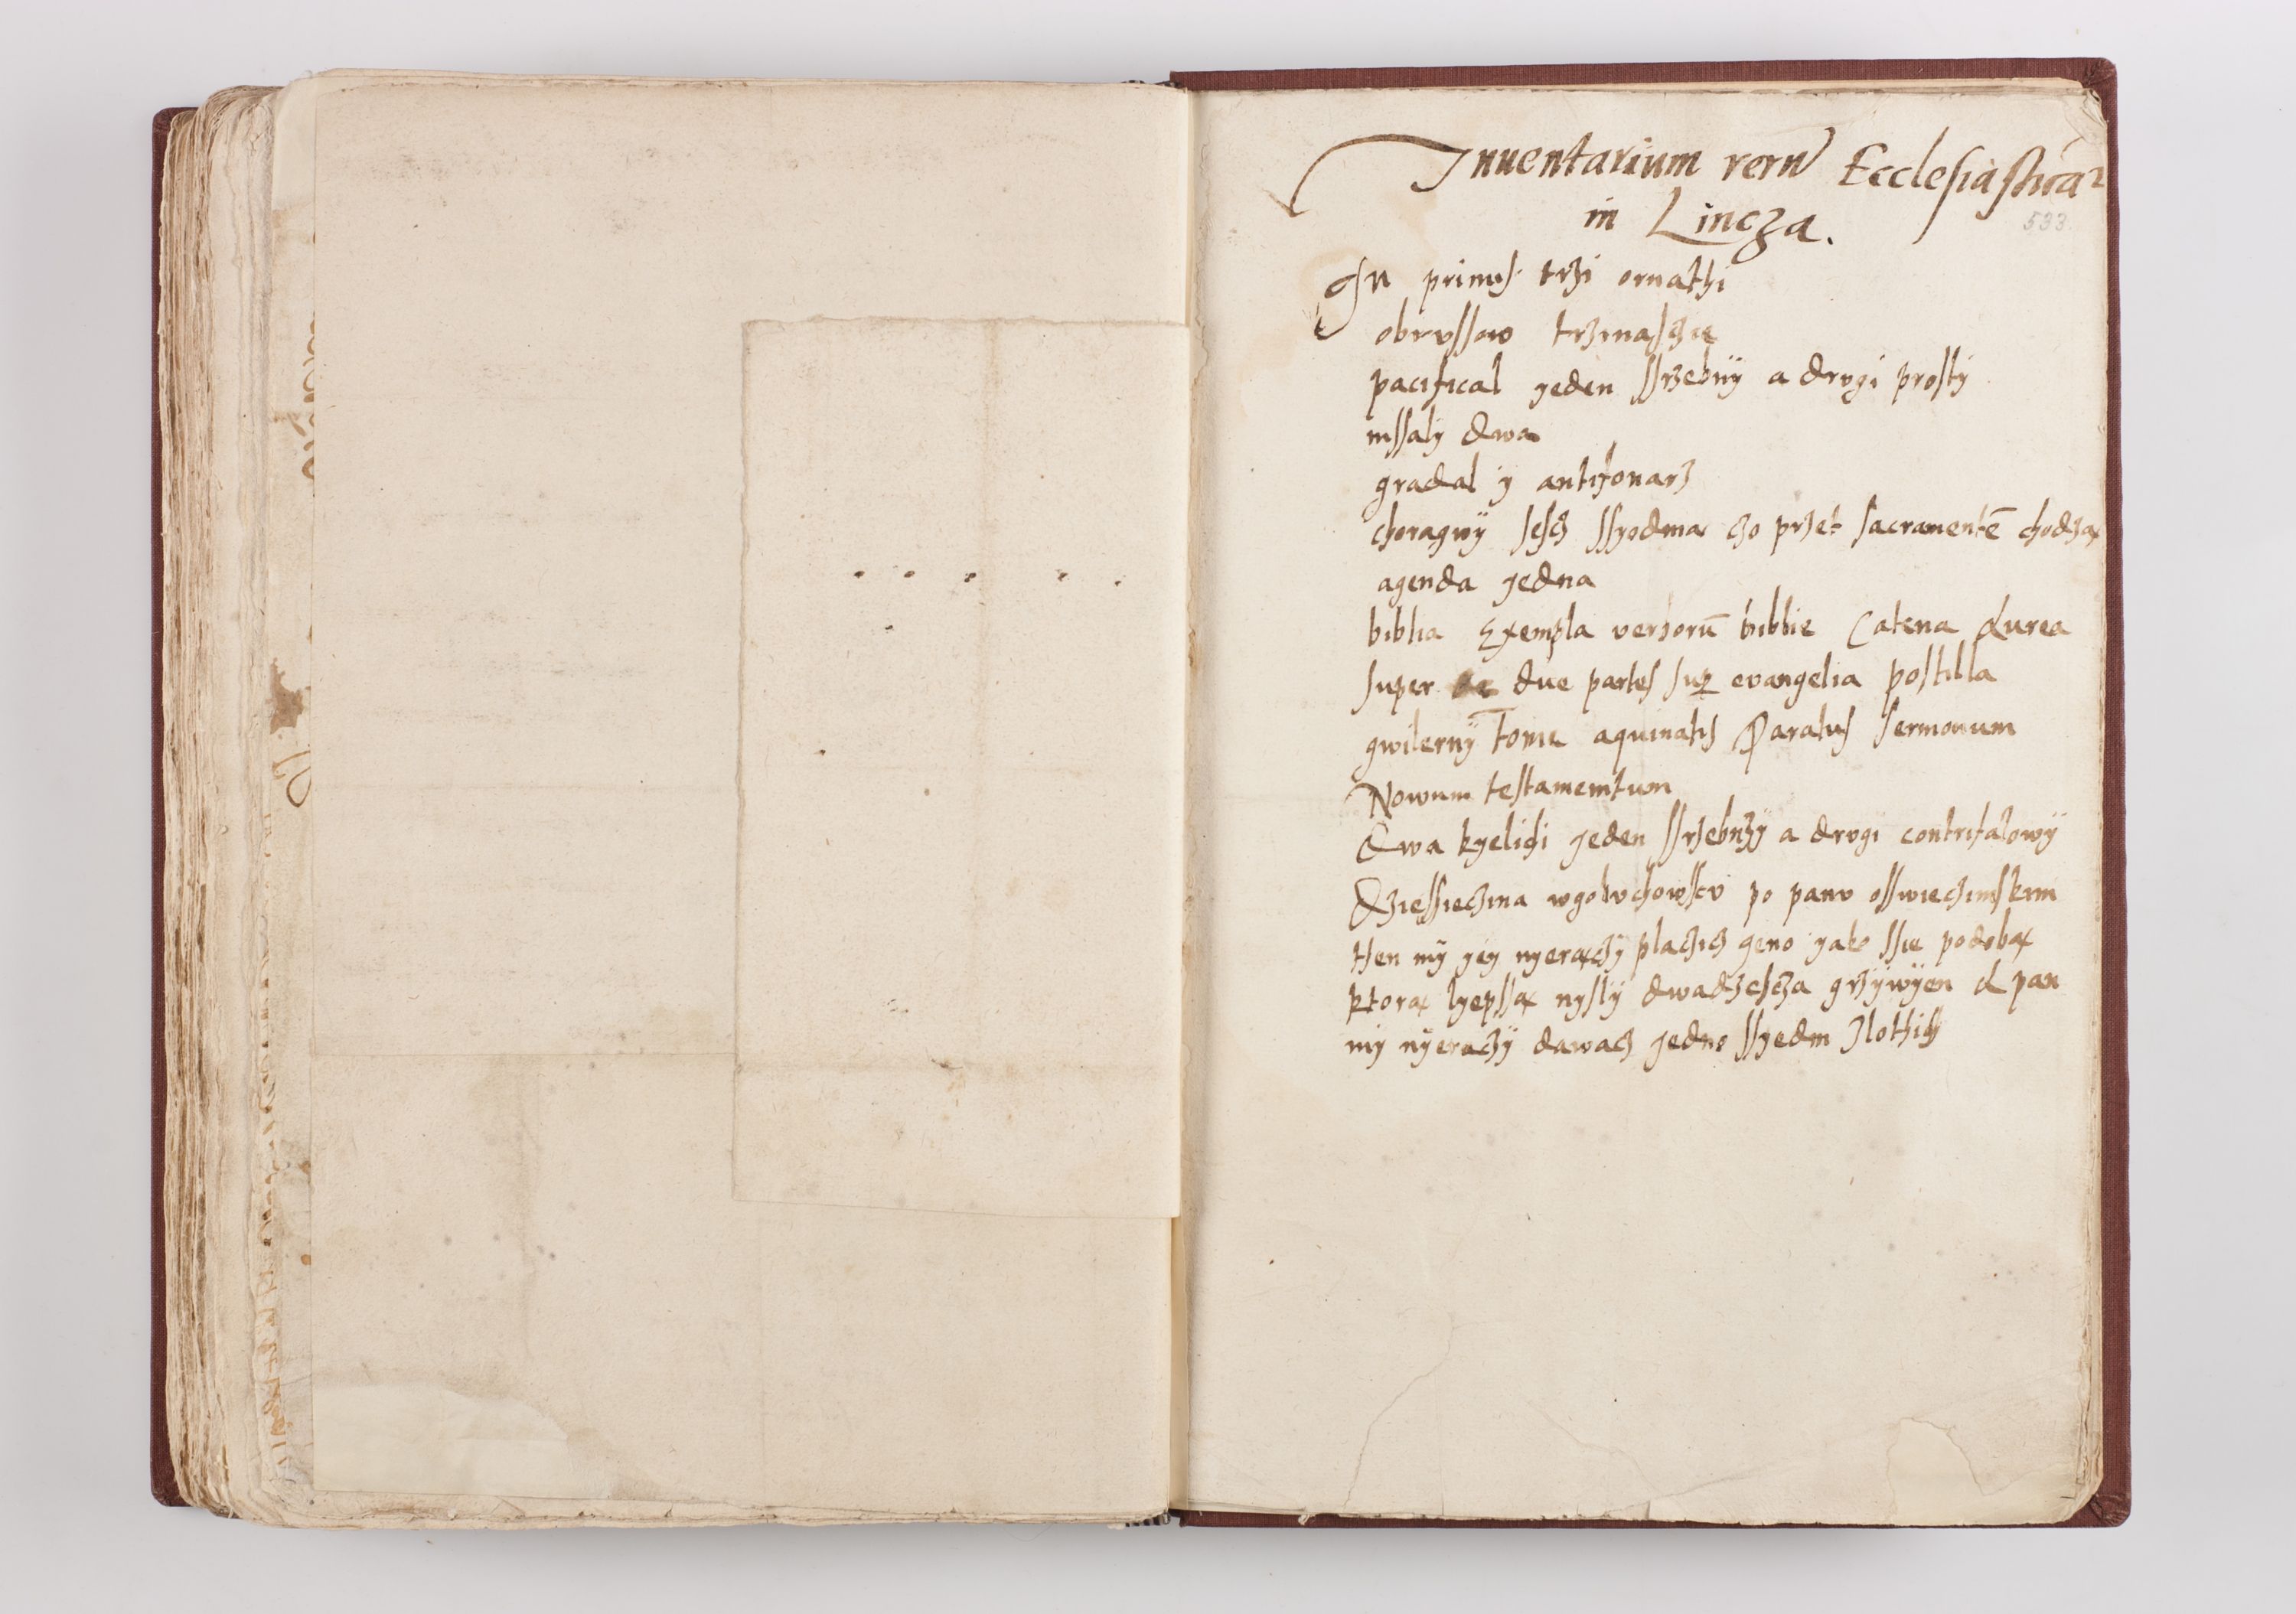 Inuentarium rerũ Ecclesiastica2
in Lincza.
533
In primis trzi ornathi
obrvssow trzinasczie
pacifical yeden ssrzebny a drvgi prosty
mssaly dwa
gradal y antifonarz
choragwy sescz ssyodma czo przet sacramentē chodza
agenda yedna
biblia Exempla verborū biblie Catena Aurea
super due partes sup evangelia postilla
gwilerny Tome aquinatis Paratus sermonum
Nowum testamemtum
Dwa kyelichi yeden ssrzebny a drvgi contrifalowy
Dziessieczina wgolvchowscv po panv osswieczimskim
then my yey nyeraczy placzicz yeno yako ssie podoba
ktora lyepssa nysly dwadzescza grzywyen A pan
my nyeraczy dawacz yedno ssyedm zlothich